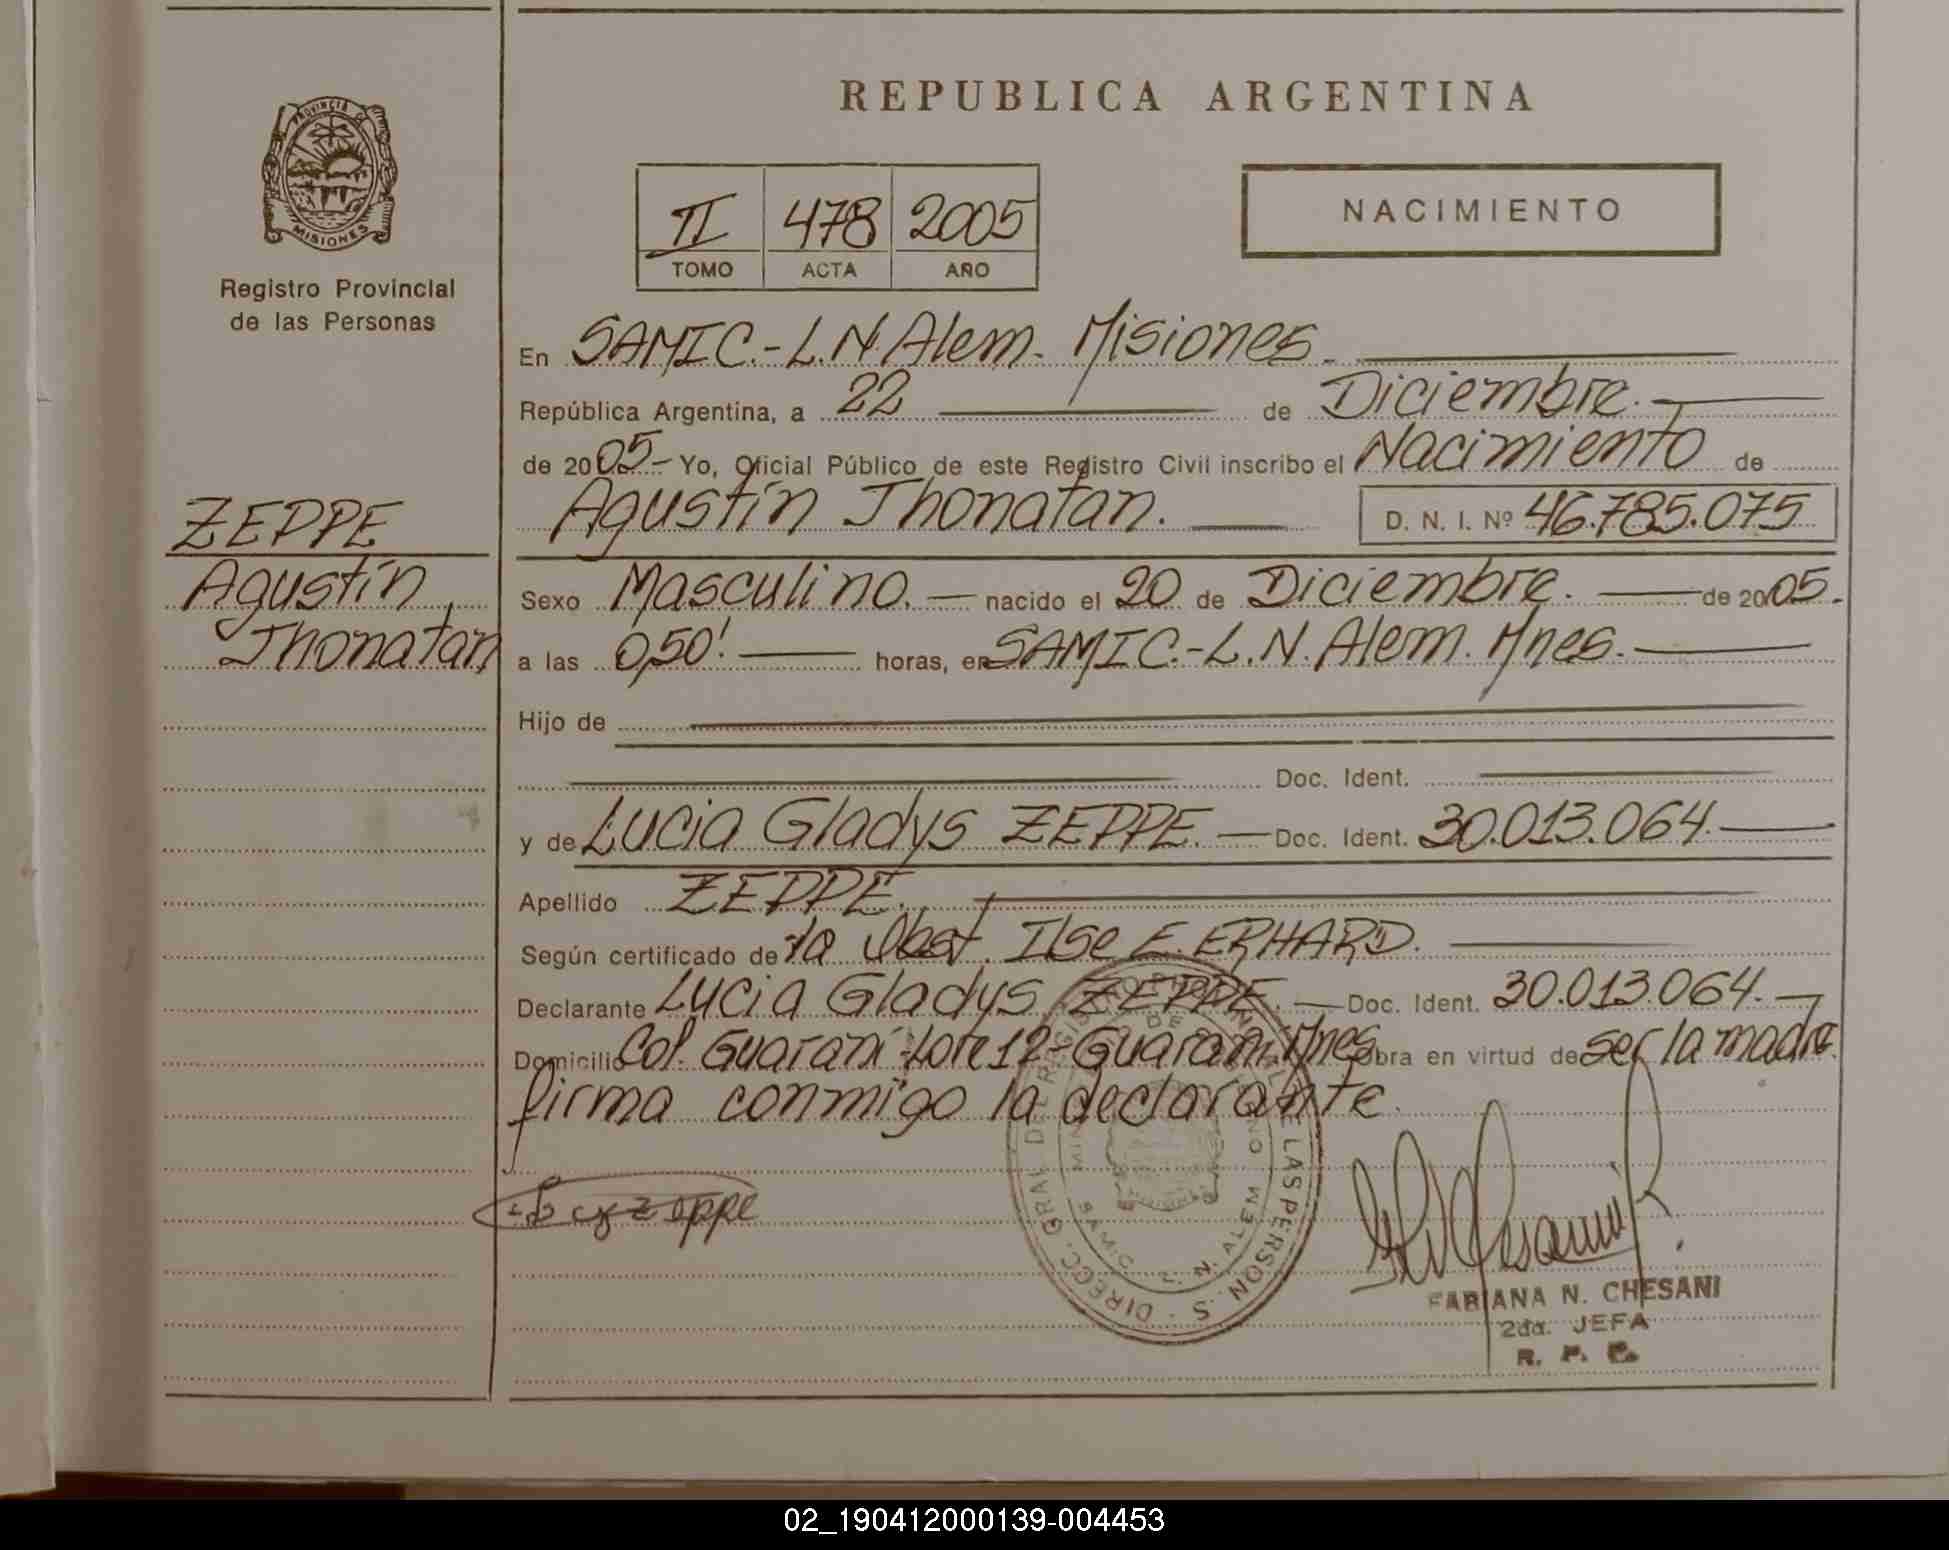 REPUBLICA ARGENTINA
PROVINCIA DE MISIONES
Registro Provincial
de las Personas
II 478 2005
TOMO ACTA AÑO
NACIMIENTO
En SAMIC.-L.N.Alem. Misiones.
República Argentina, a 22 de Diciembre.
de 2005- Yo, Oficial Público de este Registro Civil inscribo el Nacimiento de
Agustín Jhonatan. D. N. I. Nº 46.785.075
ZEPPE
Agustín
Jhonatan
Sexo Masculino. nacido el 20 de Diciembre. de 2005.
a las 0,50! horas, en SAMIC.-L.N.Alem. Mnes.
Hijo de
Doc. Ident.
y de Lucia Gladys ZEPPE. Doc. Ident. 30.013.064.
Apellido ZEPPE.
Según certificado de la Obst. Ilse E. ERHARD.
Declarante Lucia Gladys ZEPPE. Doc. Ident. 30.013.064.
Domicilio Col. Guaraní-Lote 12-Guaraní. Mnes. obra en virtud de ser la madre.
firma conmigo la declarante.
Zeppe
DIRECC. GRAL DEL REGISTRO PROVINCIAL DE LAS PERSONAS
SAMIC L. N. ALEM
FABIANA N. CHESANI
2da. JEFA
R. P. P.
02_190412000139-004453